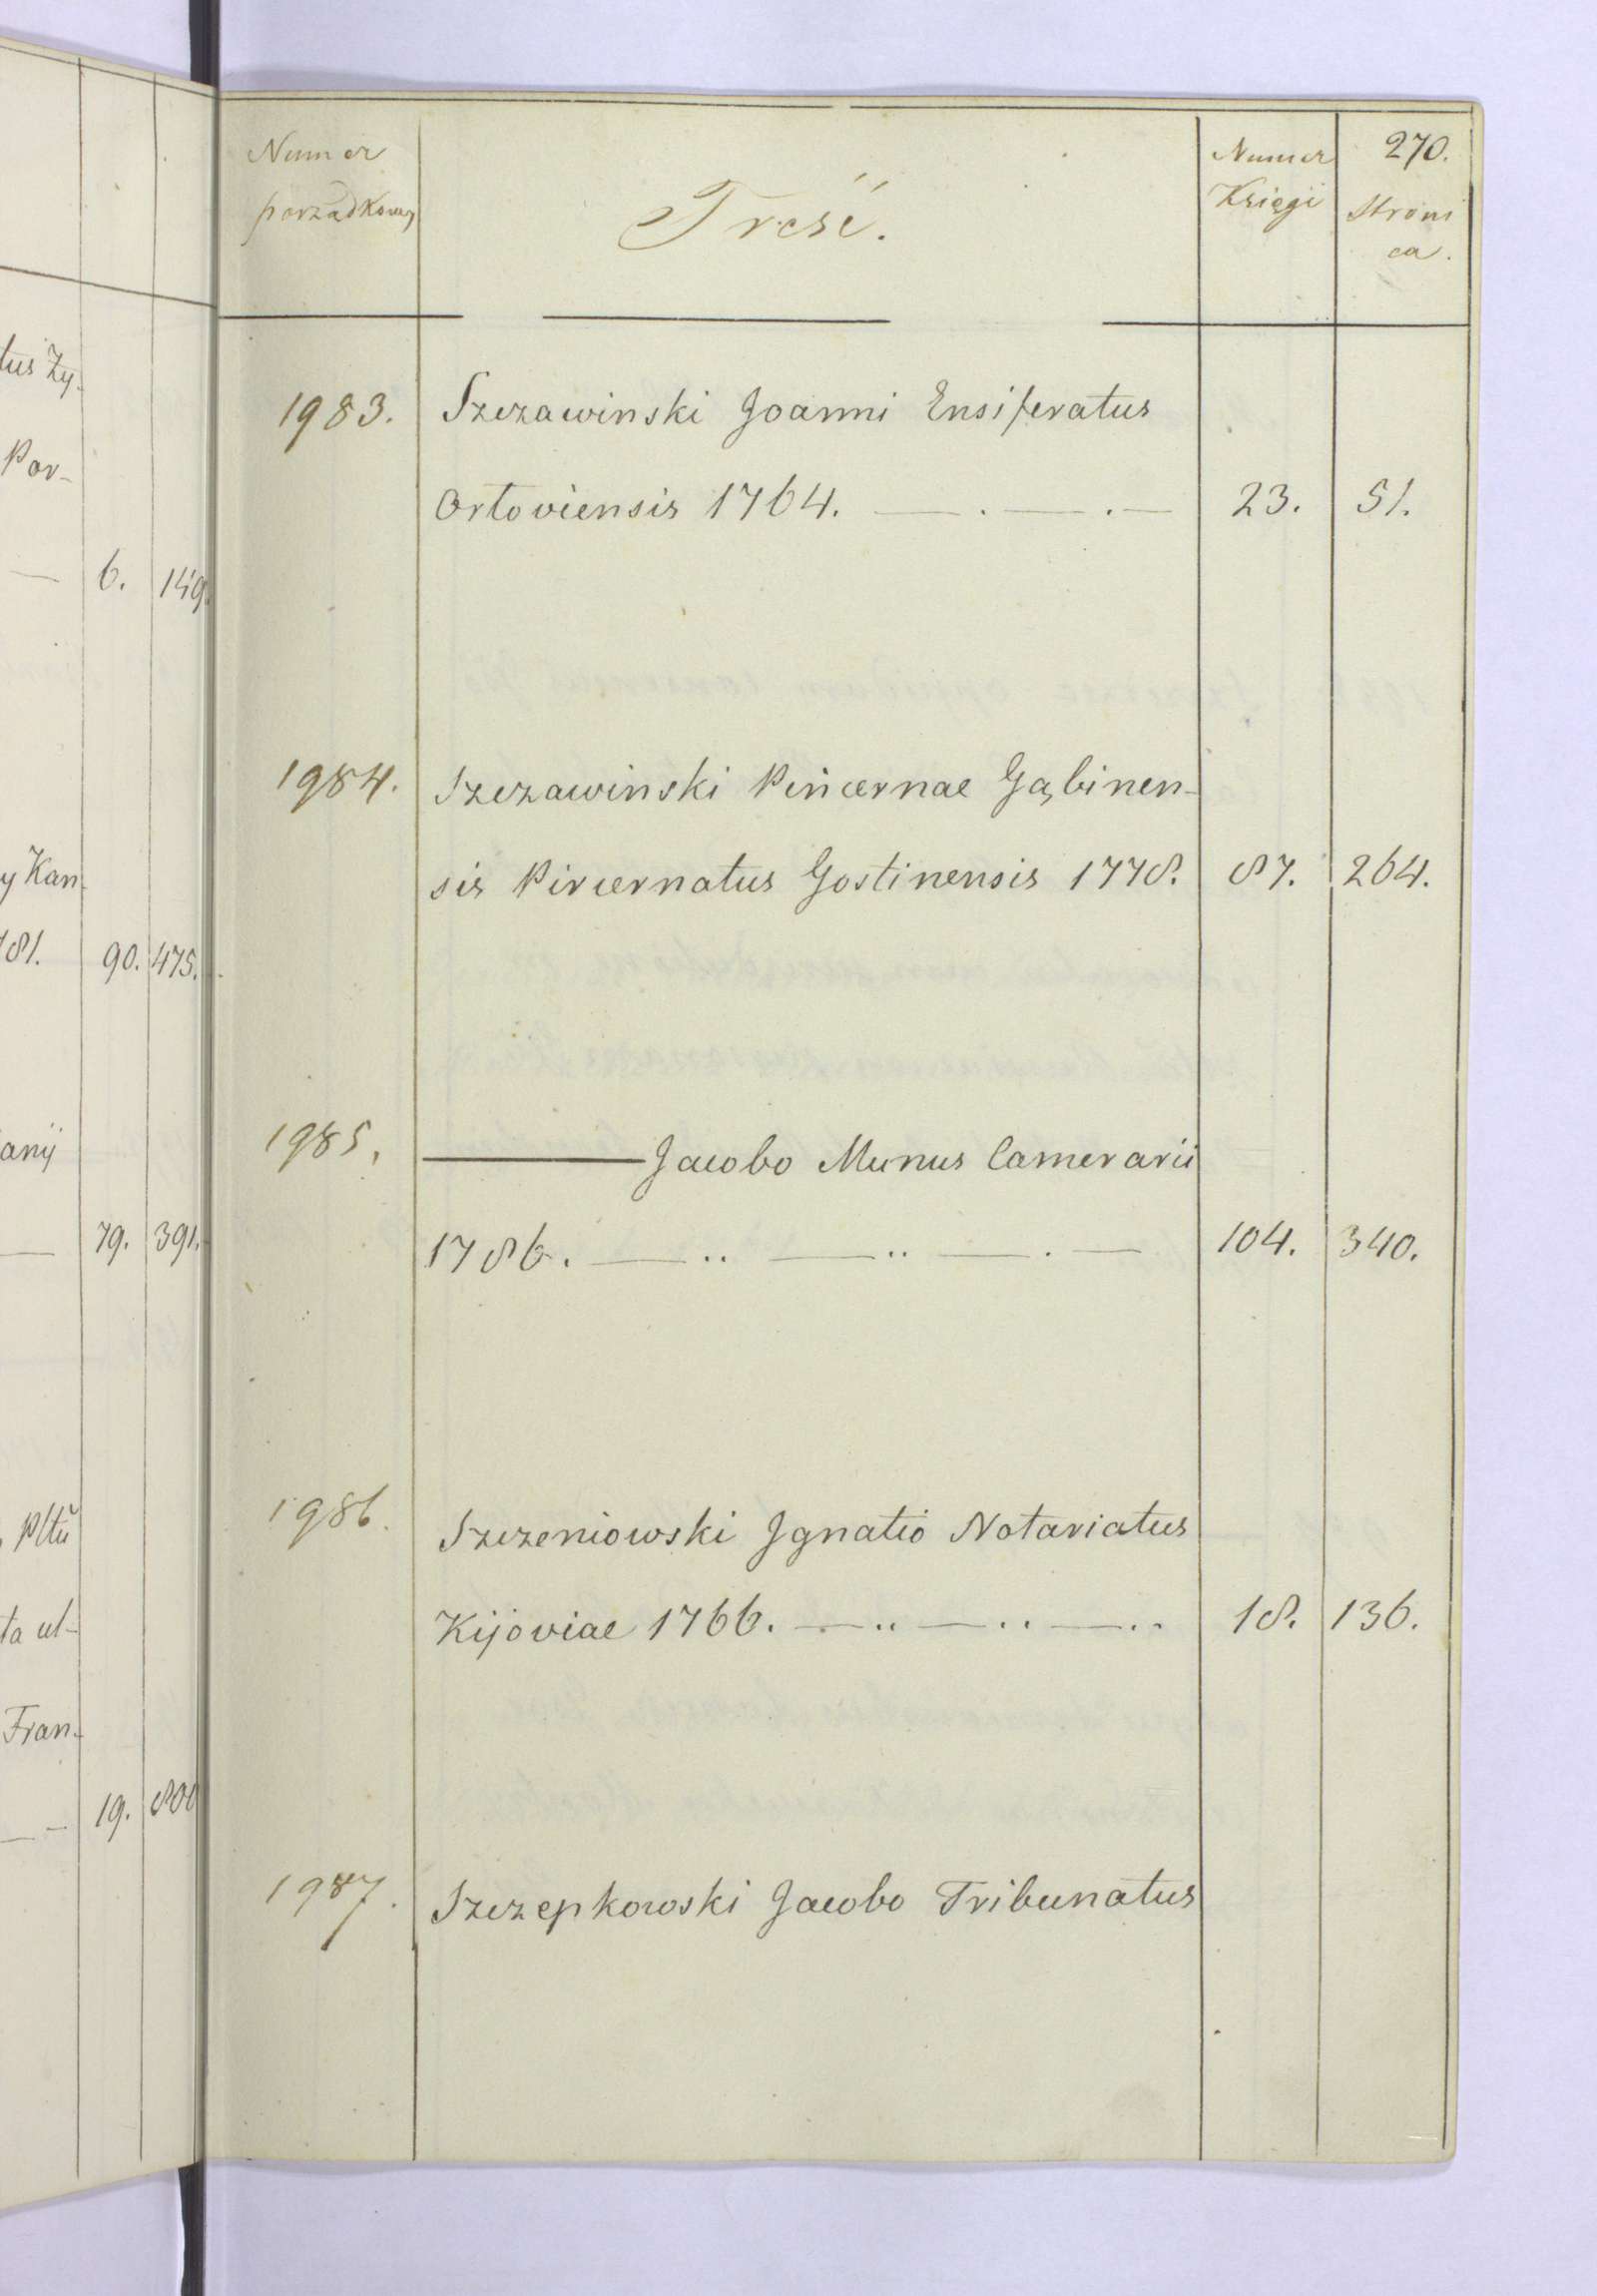 tus Zy-
Por-
— 6. 149.
y Kan-
781. 90. 475.
anij
— 79. 391.
Pltũ
ta ul-
Fran-
— - 19. 800
270.
Numer porządkowy
Treść.
Numer Księgi
Stroni
ca.
1983. Szczawinski Joanni Ensiferatus
Ortoviensis 1764. — . — . — 23. 51.
1984. Szczawinski Pincernae Gąbinen-
sis Pircernatus Gostinensis 1778. 87. 264.
1985. ——— Jacobo Munus Camerarii
1786. — .. — .. — . — 104. 340.
1986. Szczeniowski Ignatio Notariatus
Kijoviae 1766. — .. — .. — .. 18. 136.
1987. Szczepkowski Jacobo Tribunatus